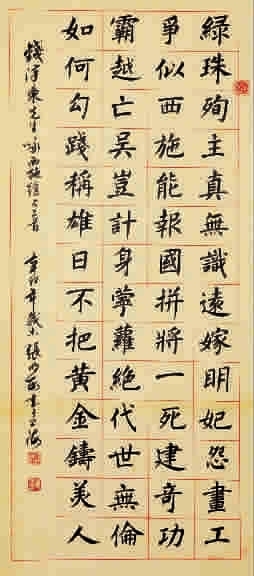 綠珠殉主真無識遠嫁明妃怨畫工
爭似西施能報國拼將一死建奇功
霸越亡吳豈計身薴蘿絕代世無倫
如何勾踐稱雄日不把黃金鑄美人
東先生咏西施絕句二首
辛卯年歲末張書于上海